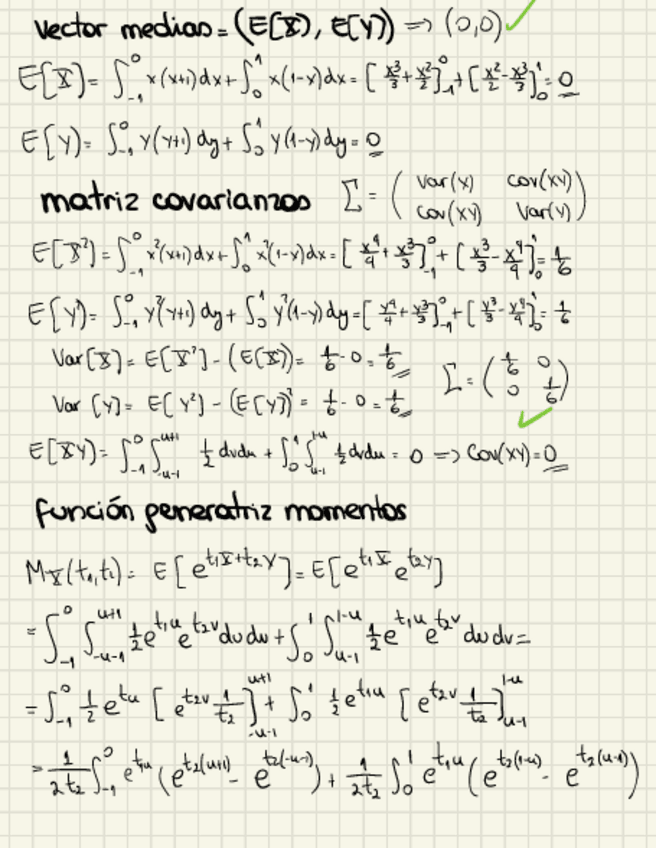 Vector medias = (E[X], E[Y]) => (0,0) ✓
E[X] = ∫_{-1}^{0} x(x+1)dx + ∫_{0}^{1} x(1-x)dx = [x³/3 + x²/2]_{-1}^{0} + [x²/2 - x³/3]_{0}^{1} = 0
E[Y] = ∫_{-1}^{0} y(y+1)dy + ∫_{0}^{1} y(1-y)dy = 0
matriz covarianzas Σ = ( Var(X) cov(XY) / cov(XY) Var(Y) )
E[X²] = ∫_{-1}^{0} x²(x+1)dx + ∫_{0}^{1} x²(1-x)dx = [x⁴/4 + x³/3]_{-1}^{0} + [x³/3 - x⁴/4]_{0}^{1} = 1/6
E[Y²] = ∫_{-1}^{0} y²(y+1)dy + ∫_{0}^{1} y²(1-y)dy = [y⁴/4 + y³/3]_{-1}^{0} + [y³/3 - y⁴/4]_{0}^{1} = 1/6
Var[X] = E[X²] - (E[X])² = 1/6 - 0 = 1/6 Σ = ( 1/6 0 / 0 1/6 ) ✓
Var[Y] = E[Y²] - (E[Y])² = 1/6 - 0 = 1/6
E[XY] = ∫_{-1}^{0} ∫_{-u-1}^{u+1} 1/2 dvdu + ∫_{0}^{1} ∫_{u-1}^{1-u} 1/2 dvdu = 0 => Cov(XY) = 0
función generatriz momentos
M_X(t₁,t₂) = E[e^{t₁X+t₂Y}] = E[e^{t₁X} e^{t₂Y}]
= ∫_{-1}^{0} ∫_{-u-1}^{u+1} 1/2 e^{t₁u} e^{t₂v} dv du + ∫_{0}^{1} ∫_{u-1}^{1-u} 1/2 e^{t₁u} e^{t₂v} du dv =
= ∫_{-1}^{0} 1/2 e^{tu} [e^{t₂v} 1/t₂]_{-u-1}^{u+1} + ∫_{0}^{1} 1/2 e^{t₁u} [e^{t₂v} 1/t₂]_{u-1}^{1-u}
= 1/2t₂ ∫_{-1}^{0} e^{t₁u} (e^{t₂(u+1)} - e^{t₂(-u-1)}) + 1/2t₂ ∫_{0}^{1} e^{t₁u} (e^{t₂(1-u)} - e^{t₂(u-1)})